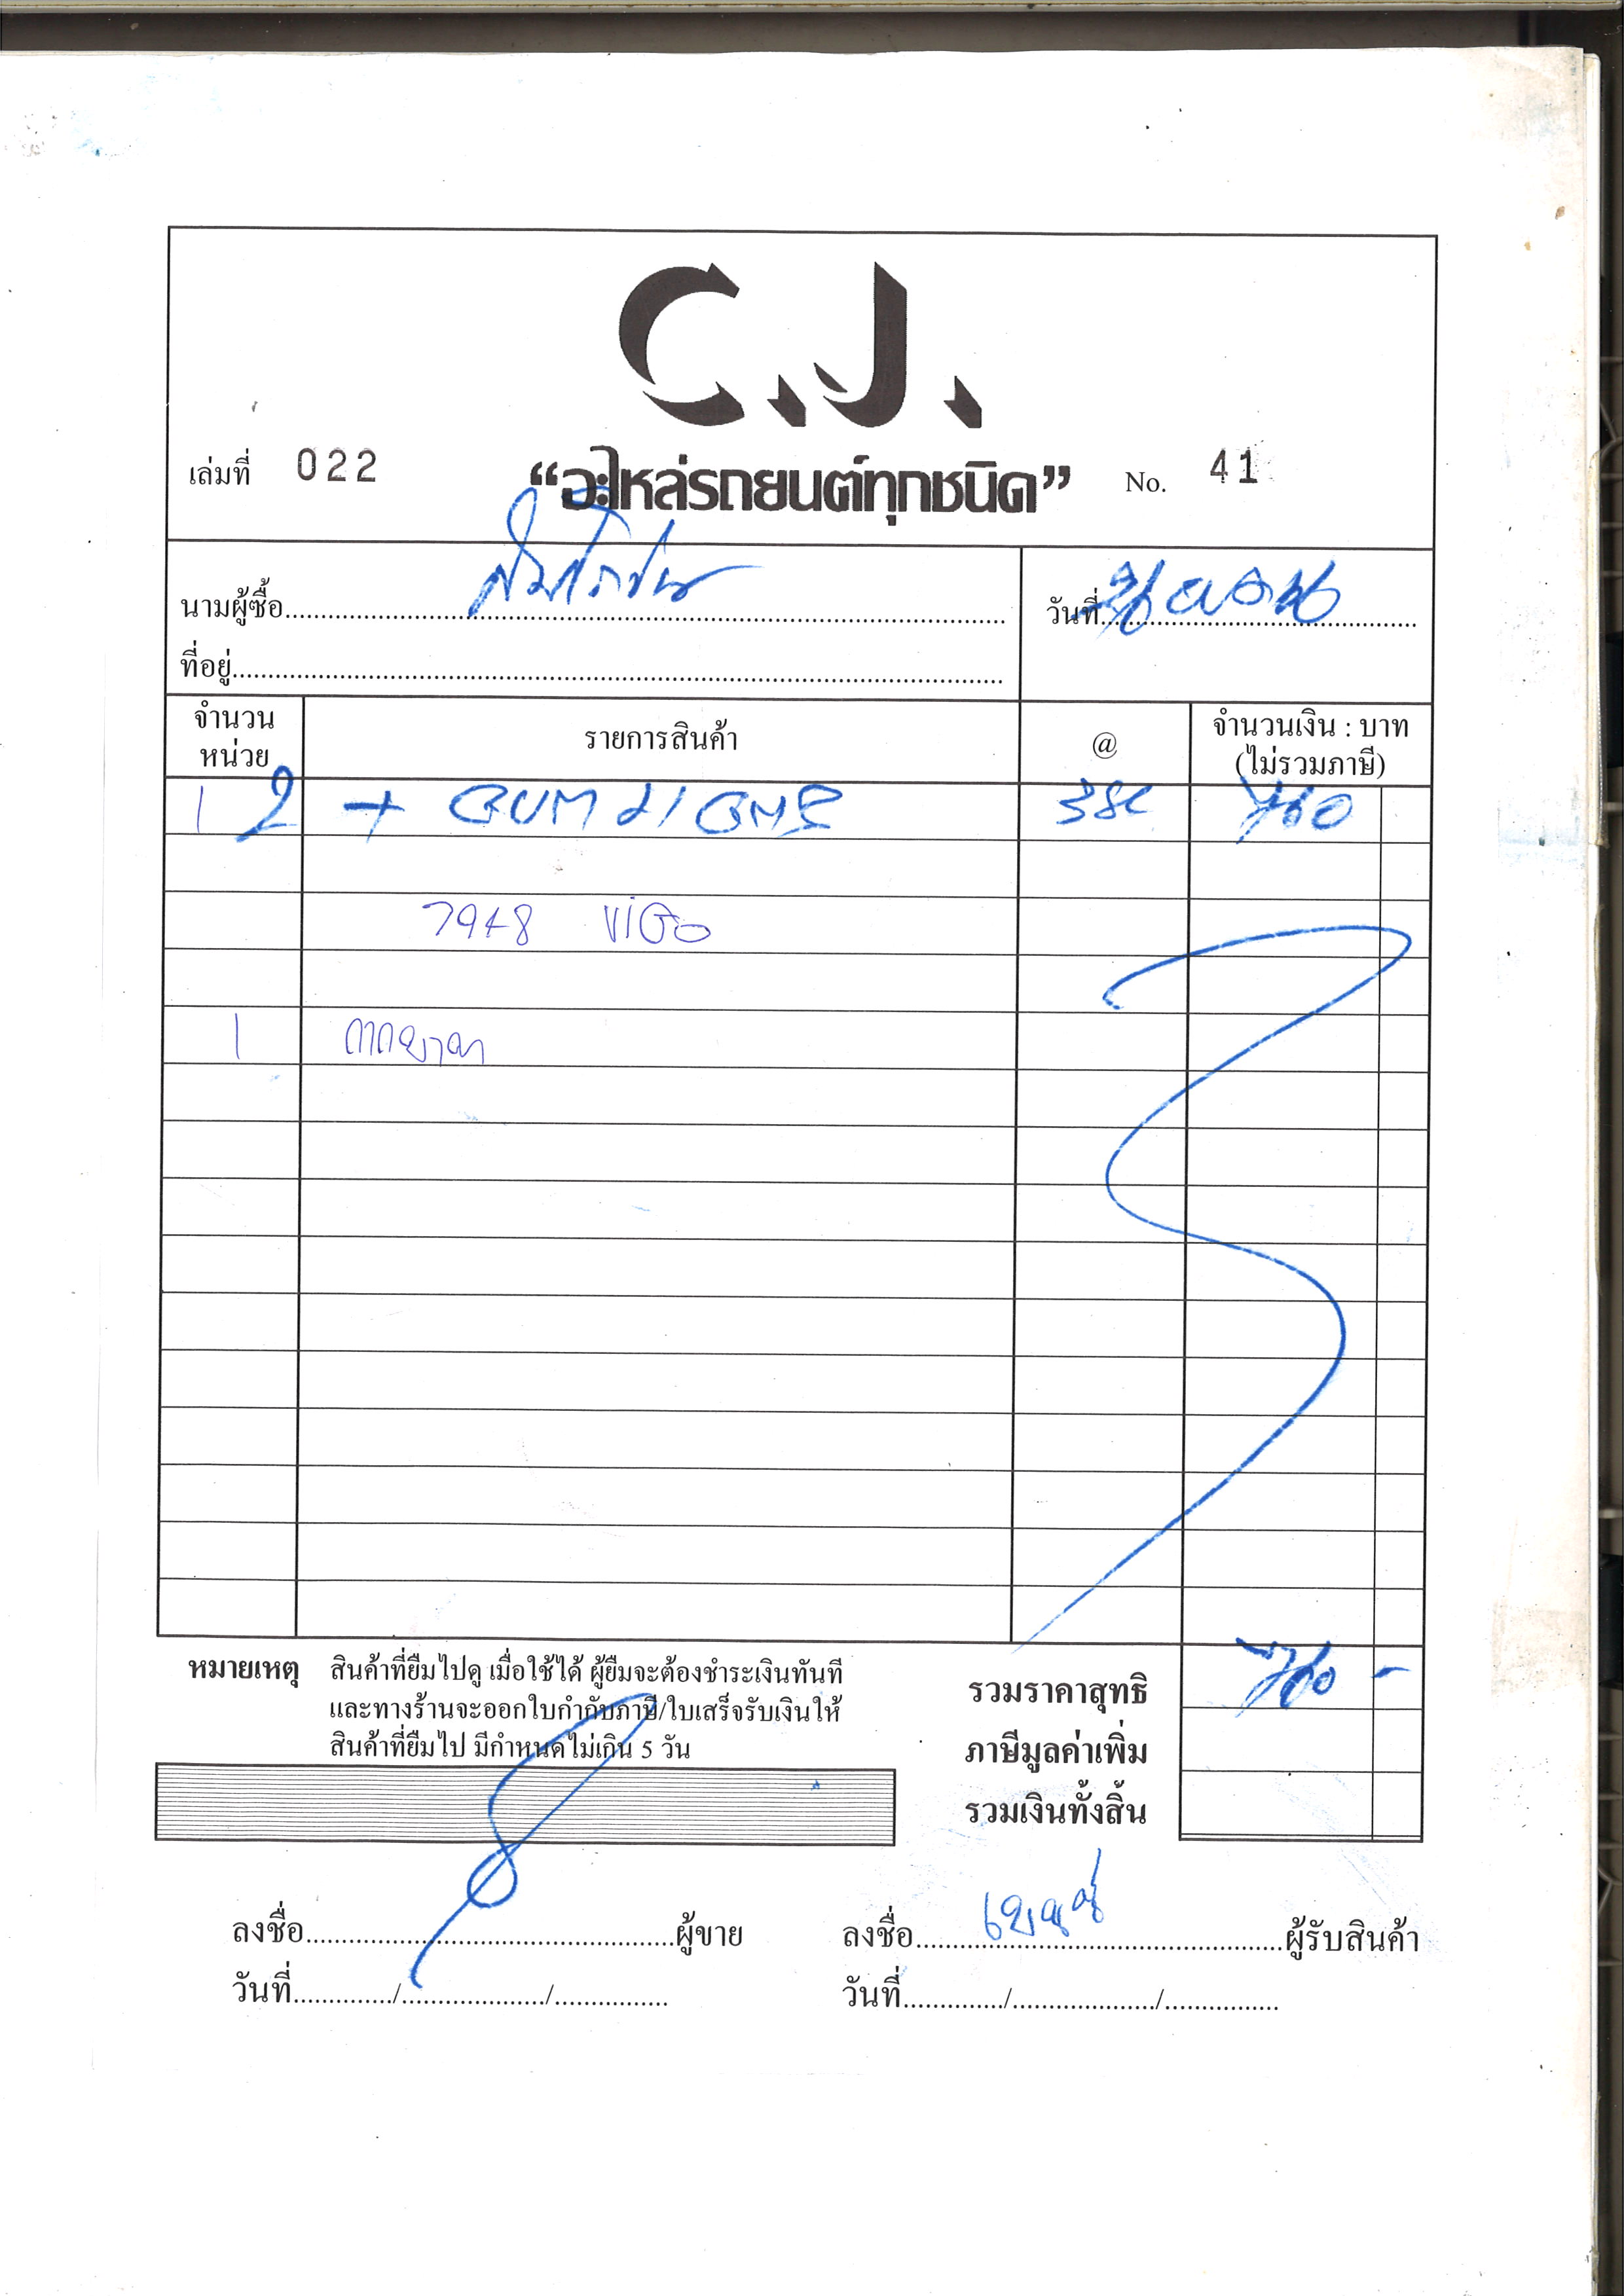 C.J.
เล่มที่ 022 “อะไหล่รถยนต์ทุกชนิด” No. 41
นามผู้ซื้อ
วันที่
ที่อยู่
จำนวนหน่วย รายการสินค้า @ จำนวนเงิน : บาท (ไม่รวมภาษี)
1 2 760
7948 VIGO
1
หมายเหตุ สินค้าที่ยืมไปดู เมื่อใช้ได้ ผู้ยืมจะต้องชำระเงินทันที
และทางร้านจะออกใบกำกับภาษี/ใบเสร็จรับเงินให้
สินค้าที่ยืมไป มีกำหนดไม่เกิน 5 วัน
รวมราคาสุทธิ 760 -
ภาษีมูลค่าเพิ่ม
รวมเงินทั้งสิ้น
ลงชื่อ ผู้ขาย ลงชื่อ ผู้รับสินค้า
วันที่ / / วันที่ / /